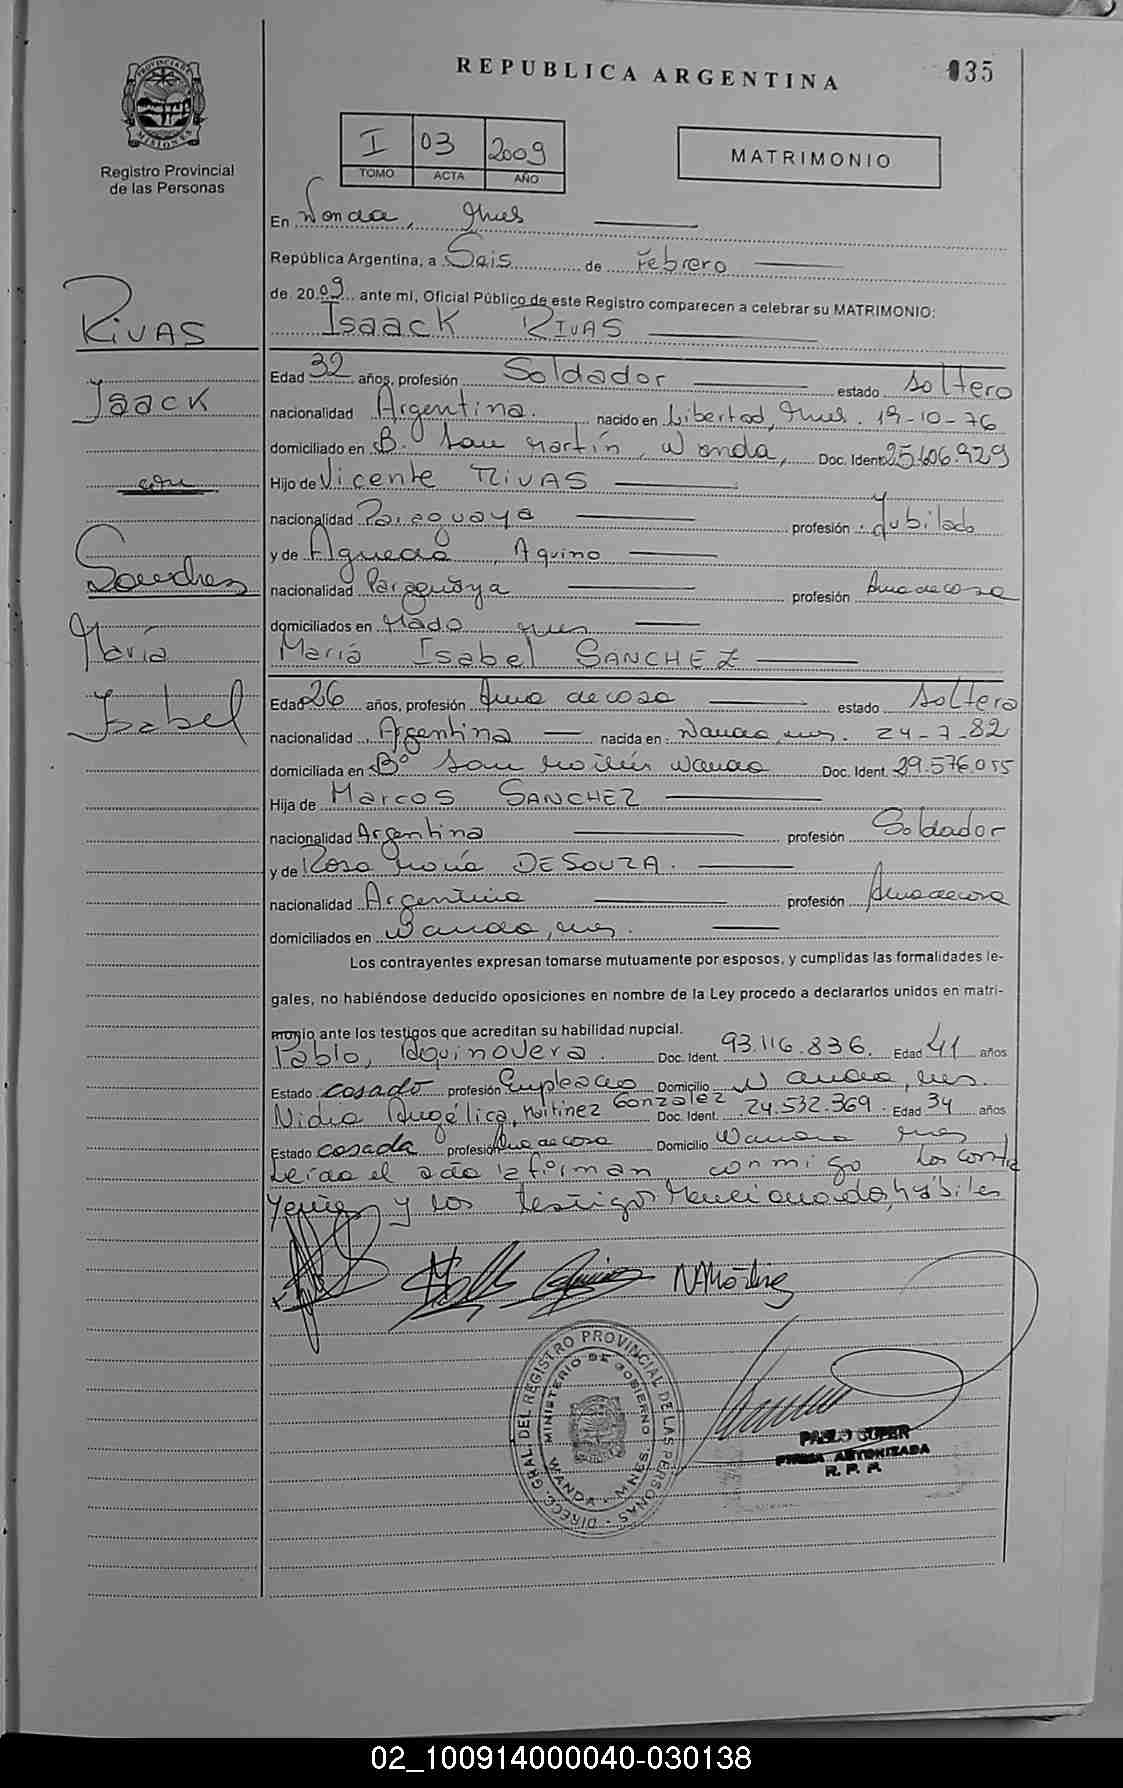 REPUBLICA ARGENTINA
035
PROVINCIA DE MISIONES
Registro Provincial
de las Personas
I 03 2009
TOMO ACTA AÑO
MATRIMONIO
En Wanda, Mnes
República Argentina, a Seis de Febrero
de 2009 ante mi, Oficial Público de este Registro comparecen a celebrar su MATRIMONIO:
Isaack RIVAS
RIVAS
Isaack
con
Sanches
María
Isabel
Edad 32 años, profesión Soldador estado soltero
nacionalidad Argentina. nacido en Libertad, Mnes. 19-10-76
domiciliado en B. San Martín, Wanda, Doc. Ident. 25.606.929
Hijo de Vicente RIVAS
nacionalidad Paraguaya profesión Jubilado
y de Agueda Aquino
nacionalidad Paraguaya profesión Ama de casa
domiciliados en Mado mnes
María Isabel SANCHEZ
Edad 26 años, profesión Ama de casa estado soltera
nacionalidad Argentina nacida en: Wanda, mnes. 24-7-82
domiciliada en Bº San Wanda Doc. Ident. 29.576.055
Hija de Marcos SANCHEZ
nacionalidad Argentina profesión Soldador
y de Rosa María DE SOUZA.
nacionalidad Argentina profesión Ama de casa
domiciliados en Wanda, mnes.
Los contrayentes expresan tomarse mutuamente por esposos, y cumplidas las formalidades le-
gales, no habiéndose deducido oposiciones en nombre de la Ley procedo a declararlos unidos en matri-
monio ante los testigos que acreditan su habilidad nupcial.
Pablo, Aquino Vera. Doc. Ident. 93.116.836. Edad 41 años
Estado casado profesión Empleado Domicilio Wanda, mnes.
Nidia Angélica, Martinez Gonzalez Doc. Ident. 24.532.369. Edad 34 años
Estado casada profesión Ama de casa Domicilio Wanda mnes
Leida el acta la firman conmigo los contra
yentes y los testigos Mencionados, hábiles
DIRECC. GRAL. DEL REGISTRO PROVINCIAL DE LAS PERSONAS
MINISTERIO DE GOBIERNO
WANDA - MNES.
PABLO SUPER
FIRMA AUTORIZADA
R. P. P.
02_100914000040-030138